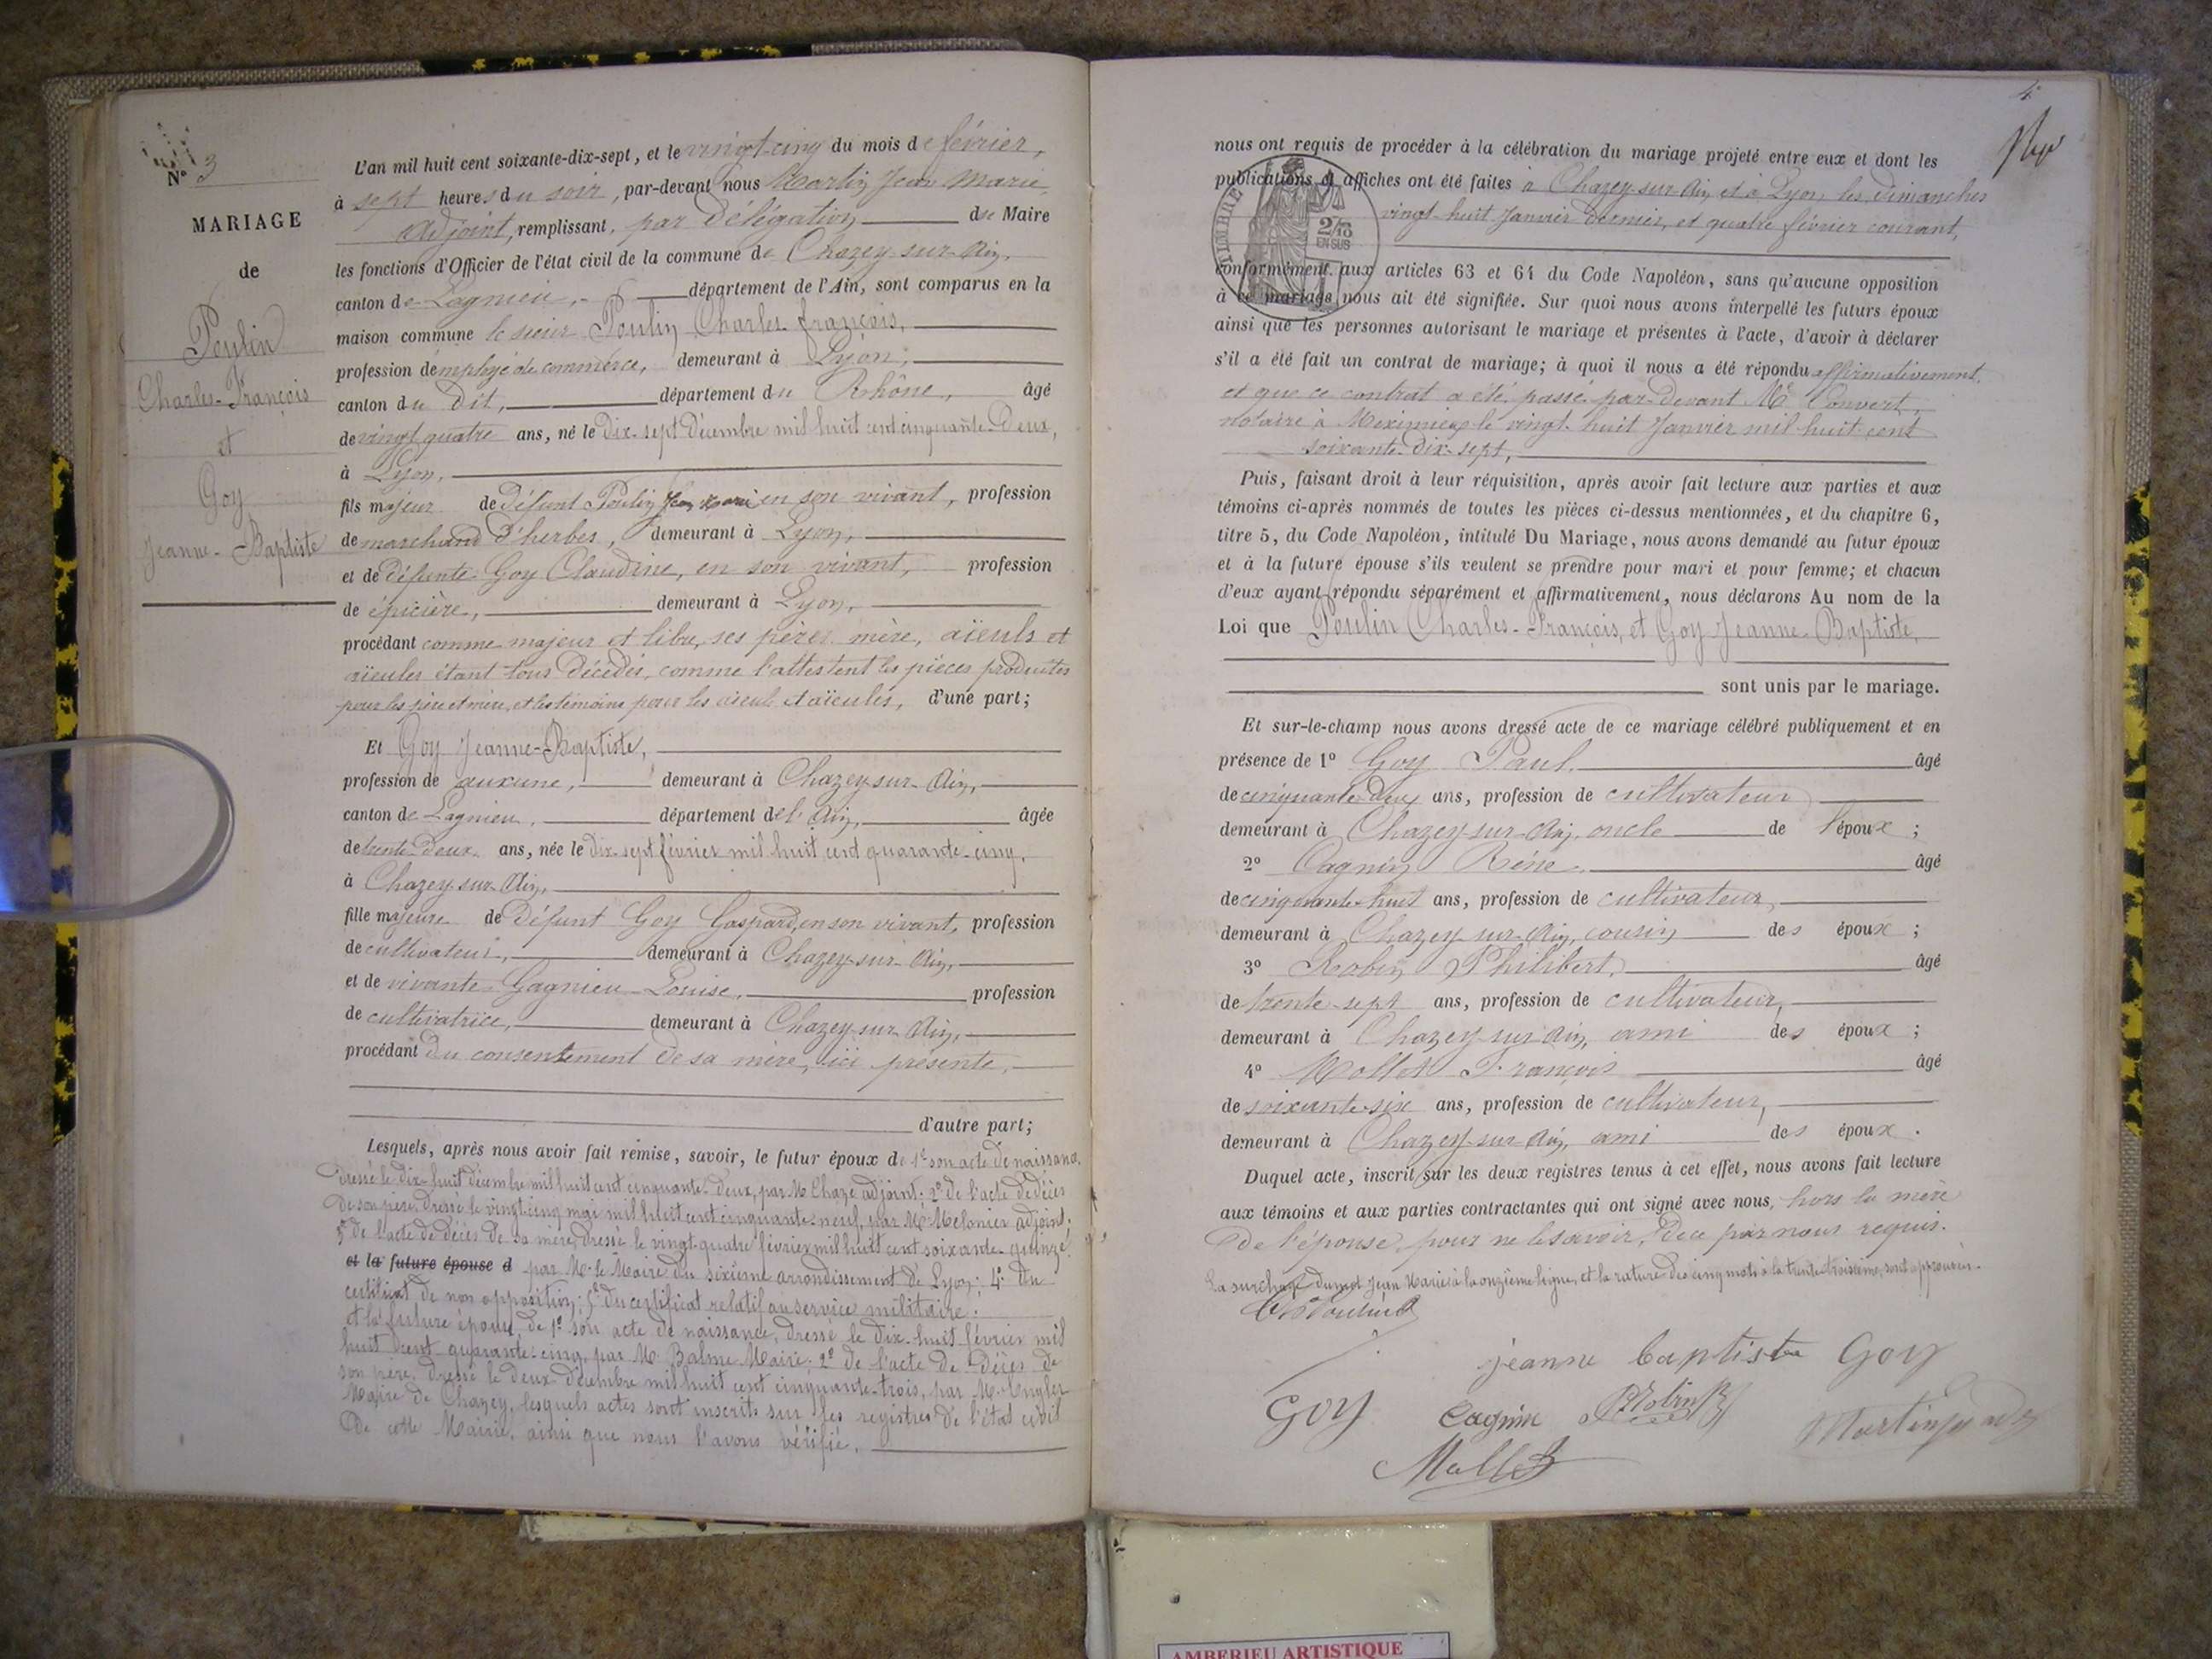 Nº 3
MARIAGE
de
Poulin
Charles-François
et
Goy
Jeanne-Baptiste
L'an mil huit cent soixante-dix-sept, et le vingt-cinq du mois de février,
à sept heures du soir, par-devant nous Martin Jean Marie
adjoint, remplissant, par délégation du Maire
les fonctions d'Officier de l'état civil de la commune de Chazey-sur-Ain,
canton de Lagnieu, département de l'Ain, sont comparus en la
maison commune le sieur Poulin Charles-françois,
profession d'employé de commerce, demeurant à Lyon,
canton du dit, département du Rhône, âgé
de vingt quatre ans, né le dix-sept décembre mil huit cent cinquante-deux,
à Lyon,
fils majeur de défunt Poulin Jean Marie en son vivant, profession
de marchand d'herbes, demeurant à Lyon,
et de défunte Goy Claudine, en son vivant, profession
de épicière, demeurant à Lyon,
procédant comme majeur et libre, ses père et mère, aïeuls et
aïeules étant tous décédés, comme l'attestent les pièces produites
pour les père et mère, et les témoins pour les aïeuls et aïeules, d'une part;
Et Goy Jeanne-Baptiste,
profession de aucune, demeurant à Chazey-sur-Ain,
canton de Lagnieu, département de l'Ain, âgée
de trente-deux ans, née le dix-sept février mil huit cent quarante-cinq,
à Chazey-sur-Ain,
fille majeure de défunt Goy Gaspard, en son vivant, profession
de cultivateur, demeurant à Chazey-sur-Ain,
et de vivante Gagnieu Louise, profession
de cultivatrice, demeurant à Chazey-sur-Ain,
procédant du consentement de sa mère, ici présente,
d'autre part;
Lesquels, après nous avoir fait remise, savoir, le futur époux de 1º son acte de naissance,
dressé le dix-huit décembre mil huit cent cinquante-deux, par M. Chaze adjoint; 2º de l'acte de décès
de son père, dressé le vingt-cinq mai mil huit cent cinquante-neuf, par M. Melonier adjoint;
3º de l'acte de décès de sa mère, dressé le vingt-quatre février mil huit cent soixante-quinze,
et la future épouse d par M. le Maire du sixième arrondissement de Lyon; 4º du
certificat de non opposition; 5º du certificat relatif au service militaire.
et la future épouse, de 1º son acte de naissance, dressé le dix-huit février mil
huit cent quarante-cinq, par M. Balme Maire; 2º de l'acte de décès de
son père, dressé le deux décembre mil huit cent cinquante-trois, par M.
Maire de Chazey, lesquels actes sont inscrits sur les registres de l'état civil
de cette Mairie, ainsi que nous l'avons vérifié.
4
nous ont requis de procéder à la célébration du mariage projeté entre eux et dont les
publications et affiches ont été faites à Chazey-sur-Ain et à Lyon, les dimanches
vingt-huit Janvier dernier, et quatre février courant,
TIMBRE
2/10
EN SUS
conformément aux articles 63 et 64 du Code Napoléon, sans qu'aucune opposition
à ce mariage nous ait été signifiée. Sur quoi nous avons interpellé les futurs époux
ainsi que les personnes autorisant le mariage et présentes à l'acte, d'avoir à déclarer
s'il a été fait un contrat de mariage; à quoi il nous a été répondu affirmativement,
et que ce contrat a été passé par-devant Me Convert,
notaire à Meximieux le vingt-huit Janvier mil huit cent
soixante-dix-sept,
Puis, faisant droit à leur réquisition, après avoir fait lecture aux parties et aux
témoins ci-après nommés de toutes les pièces ci-dessus mentionnées, et du chapitre 6,
titre 5, du Code Napoléon, intitulé Du Mariage, nous avons demandé au futur époux
et à la future épouse s'ils veulent se prendre pour mari et pour femme; et chacun
d'eux ayant répondu séparément et affirmativement, nous déclarons Au nom de la
Loi que Poulin Charles-François, et Goy Jeanne-Baptiste,
sont unis par le mariage.
Et sur-le-champ nous avons dressé acte de ce mariage célébré publiquement et en
présence de 1º Goy Paul. âgé
de cinquante-deux ans, profession de cultivateur
demeurant à Chazey-sur-Ain, oncle de l'époux;
2º Cagnin Réne. âgé
de cinquante-huit ans, profession de cultivateur,
demeurant à Chazey-sur-Ain, cousin des époux;
3º Robin Philibert, âgé
de trente-sept ans, profession de cultivateur,
demeurant à Chazey-sur-Ain, ami des époux;
4º Mollet François âgé
de soixante-six ans, profession de cultivateur,
demeurant à Chazey-sur-Ain, ami des époux.
Duquel acte, inscrit sur les deux registres tenus à cet effet, nous avons fait lecture
aux témoins et aux parties contractantes qui ont signé avec nous, hors la mère
de l'épouse, pour ne le savoir, de ce par nous requis.
La surcharge du mot Jean Marie à la onzième ligne, et la rature des cinq mots à la trente-troisième, sont approuvés.
jeanne baptiste Goy
Goy Cagnin
AMBERIEU ARTISTIQUE